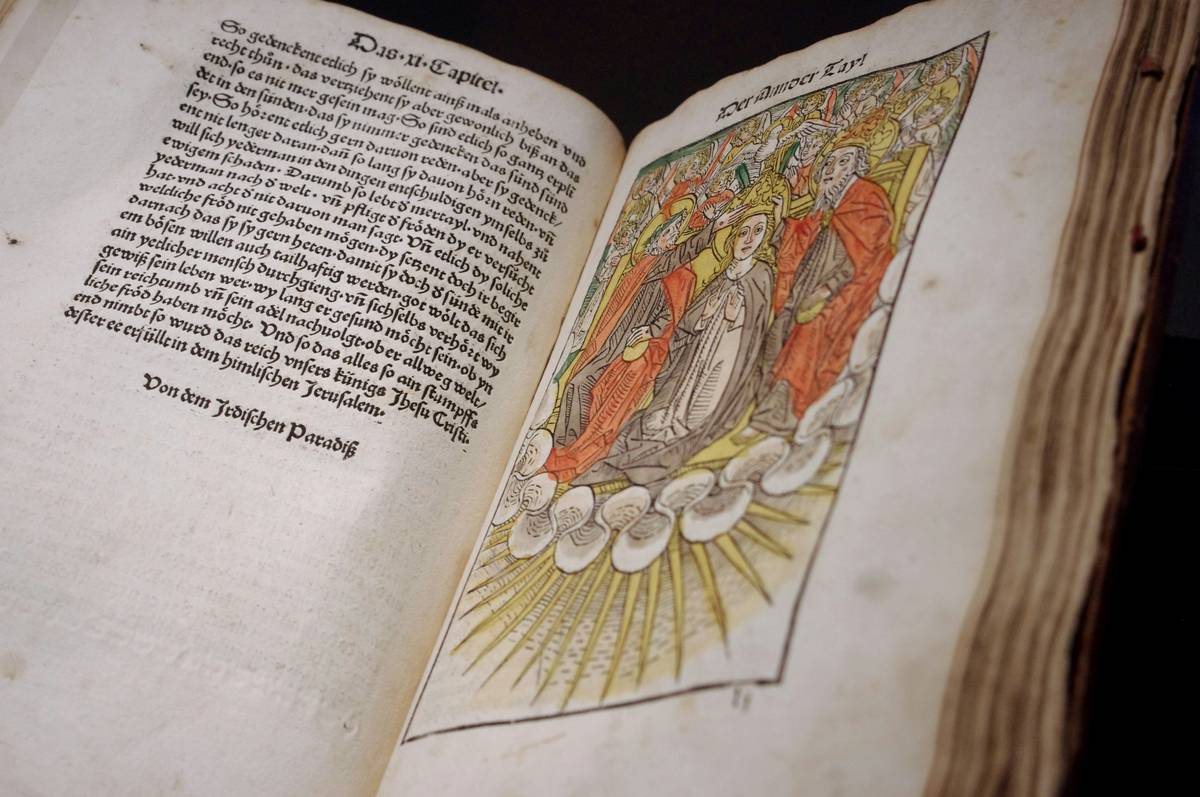 Das·xi·Capitel·
So gedenckent etlich sy wöllent ainß mals anheben vnd
recht thůn·das verziehent sy aber gewonlich biß an das
end·so es nit mer gesein mag·So sind etlich so gantz erplů
det in den sünden·das sy nimmer gedencken das sünd sünd
sey·So hörent etlich gern daruon reden·aber sy gedenck/
ent nit lenger daran·dañ so lang sy dauon hörn reden·vñ
will sich yederman in den dingen entschuldigen ynnselbs zů
ewigem schadnn·Darumb so lebt ď mertayl·vnd nahent
yederman nach ď welt·vñ pfligt ď fröden dy er versücht
hat·vnd acht ď nit daruon man sagt·Vñ etlich dy soliche
weltliche fröd nit gehaben mögen·dy setzent doch ir begir
darnach das sy sy gern heten·damit sy doch ď sünde mit ir
em bösen willen auch tailhaftig werden·got wölt das sich
ain yetlicher mensch durchgieng·vñ sichselbs verhört wy
gewiß sein leben wer·wy lang er gesund möcht sein·ob yn
sein reichtumb vñ sein adel nachuolgt·ob er allweg welt/
liche fröd haben möcht·Vnd so das alles so ain stumpffs
end nimbt so wurd das reich vnsers künigs Jhesu Cristi·
dester ee erfüllt in dem himlischen Jerusalem·
Von dem Irdischen Paradiß
Der Annder Tayl